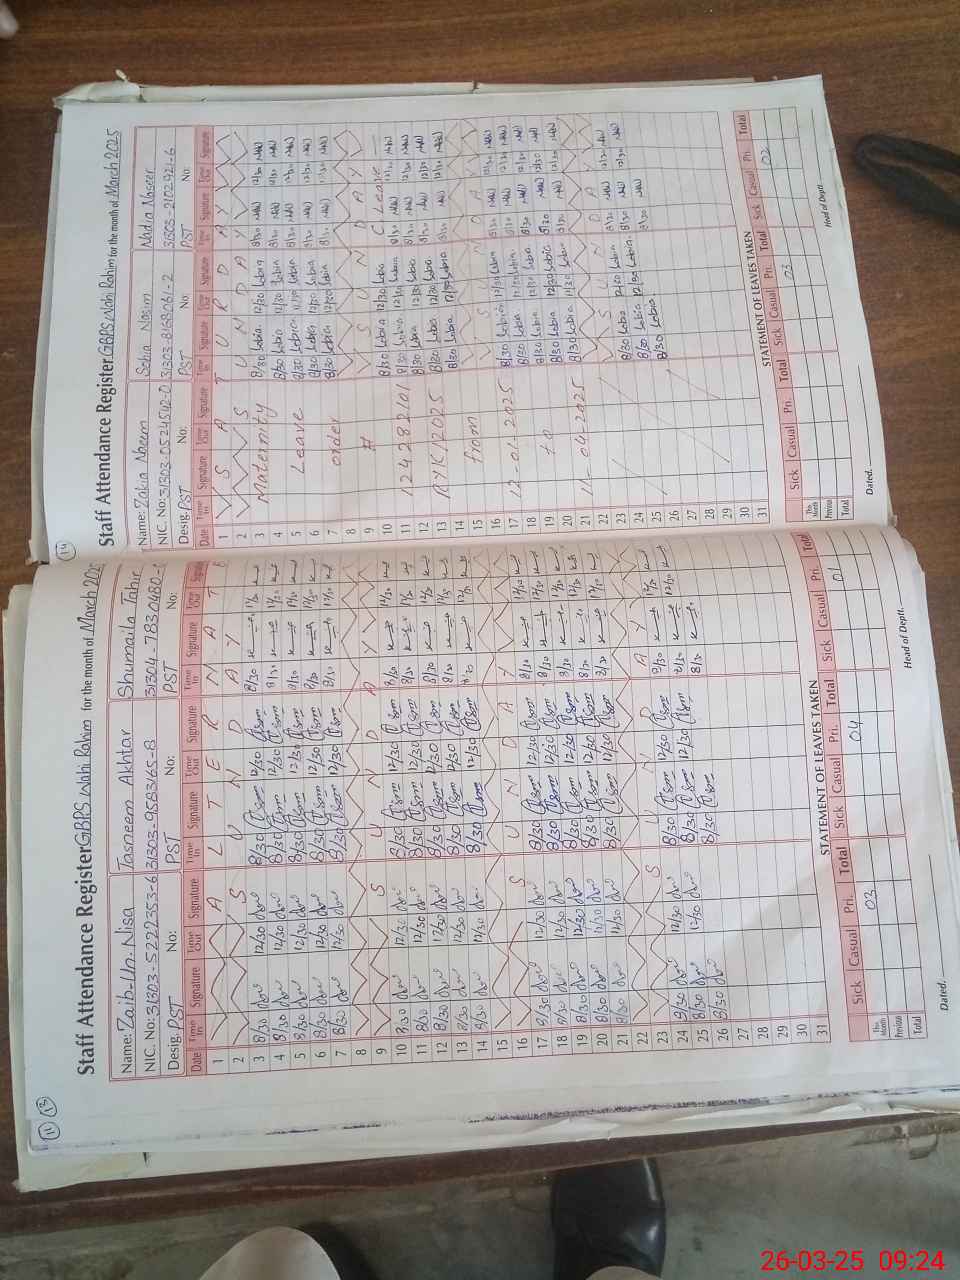 11 13
Staff Attendance Register GBPS Wahi Rahim for the month of March 202
Name: Zaib-Un-Nisa Tasneem Akhtar Shumaila Tahir
NIC. No: 31303-5222353-6 31303-9583465-8 31304-7830480-
Desig. PST No: PST No: PST No:
Date Time In Signature Time Out Signature Time In Signature Time Out Signature Time In Signature Time Out Signature
1 A L T E R N A T
2 S U N D A Y
3 8/30 12/30 8/30 12/30 8/30
4 8/30 12/30 8/30 12/30 8/30 12/30
5 8/30 12/30 8/30 12/30 8/30 12/30
6 8/30 12/30 8/30 12/30 8/30 12/30
7 8/30 12/30 8/30 12/30 8/30 12/30
8
9 S U N D A Y
10 8/30 12/30 8/30 12/30 8/30 12/30
11 8/30 12/30 8/30 12/30 8/30 12/30
12 8/30 12/30 8/30 12/30 8/30 12/30
13 8/30 12/30 8/30 12/30 8/30 12/30
14 8/30 12/30 8/30 12/30 8/30 12/30
15
16 S U N D A Y
17 8/30 12/30 8/30 12/30 8/30 12/30
18 8/30 12/30 8/30 12/30 8/30 12/30
19 8/30 12/30 8/30 12/30 8/30 12/30
20 8/30 12/30 8/30 12/30 8/30 12/30
21 8/30 12/30 8/30 12/30 8/30 12/30
22
23 S U N D A Y
24 8/30 12/30 8/30 12/30 8/30 12/30
25 8/30 12/30 8/30 12/30 8/30 12/30
26 8/30 8/30 8/30
27
28
29
30
31
STATEMENT OF LEAVES TAKEN
Sick Casual Pri. Total Sick Casual Pri. Total Sick Casual Pri. Total
This Month 02 04 01
Previous
Total
Dated. Head of Deptt.
14
Staff Attendance Register GBPS Wahi Rahim for the month of March 2025
Name: Zakia Naeem Sebia Nasim Nadia Naseer
NIC. No: 31303-0524542-0 31303-8168061-2 31303-2102921-6
Desig. PST No: PST No: PST No:
Date Time In Signature Time Out Signature Time In Signature Time Out Signature Time In Signature Time Out Signature
1 S A T U R D A Y
2 S U N D A Y
3 Maternity 8/30 Sebia 12/30 Sebia 8/30 12/30
4 8/30 Sebia 12/30 Sebia 8/30 12/30
5 Leave 8/30 Sebia 12/30 Sebia 8/30 12/30
6 8/30 Sebia 12/30 Sebia 8/30 12/30
7 order 8/30 Sebia 12/30 Sebia 8/30 12/30
8
9 # S U N D A Y
10 8/30 Sebia 12/30 Sebia C Leave
11 12428210/ 8/30 Sebia 12/30 Sebia 8/30 12/30
12 8/30 Sebia 12/30 Sebia 8/30 12/30
13 RYK/2025 8/30 Sebia 12/30 Sebia 8/30 12/30
14 8/30 Sebia 12/30 Sebia 8/30 12/30
15 from
16 S U N D A Y
17 12-01-2025 8/30 Sebia 12/30 Sebia 8/30 12/30
18 8/30 Sebia 12/30 Sebia 8/30 12/30
19 to 8/30 Sebia 12/30 Sebia 8/30 12/30
20 8/30 Sebia 12/30 Sebia 8/30 12/30
21 11-04-2025 8/30 Sebia 11/30 Sebia 8/30 12/30
22
23 S U N D A Y
24 8/30 Sebia 12/30 Sebia 8/30 12/30
25 8/30 Sebia 12/30 Sebia 8/30 12/30
26 8/30 Sebia 8/30
27
28
29
30
31
STATEMENT OF LEAVES TAKEN
Sick Casual Pri. Total Sick Casual Pri. Total Sick Casual Pri. Total
This Month 03 02
Previous
Total
Dated. Head of Deptt.
26-03-25 09:24